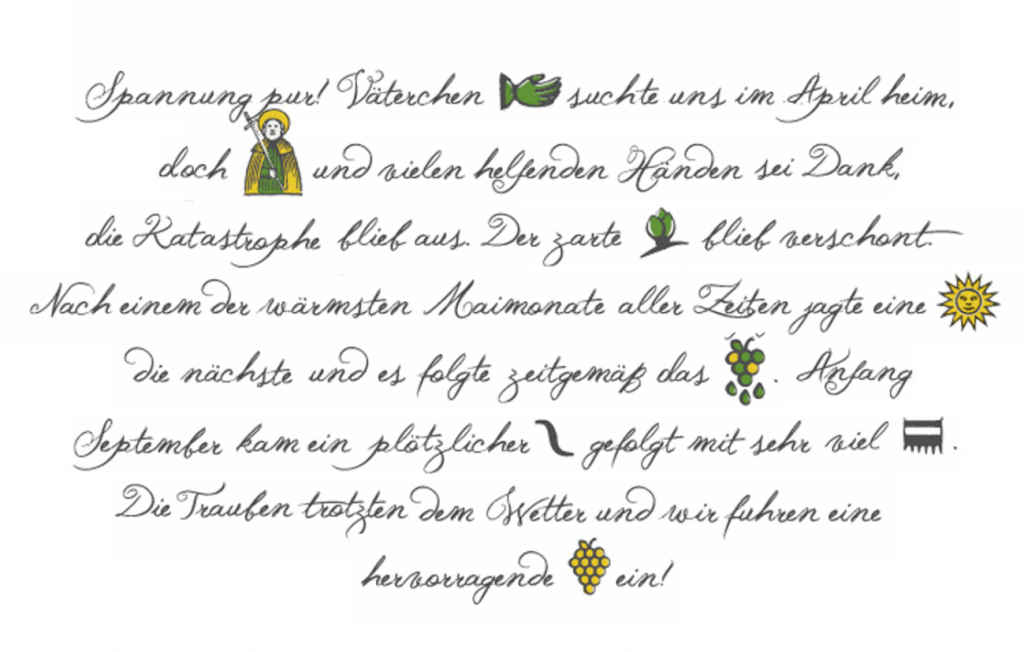 Spannung pur! Väterchen suchte uns im April heim,
doch und vielen helfenden Händen sei Dank,
die Katastrophe blieb aus. Der zarte blieb verschont.
Nach einem der wärmsten Maimonate aller Zeiten jagte eine
die nächste und es folgte zeitgemäß das . Anfang
September kam ein plötzlicher gefolgt mit sehr viel .
Die Trauben trotzten dem Wetter und wir fuhren eine
hervorragende ein!